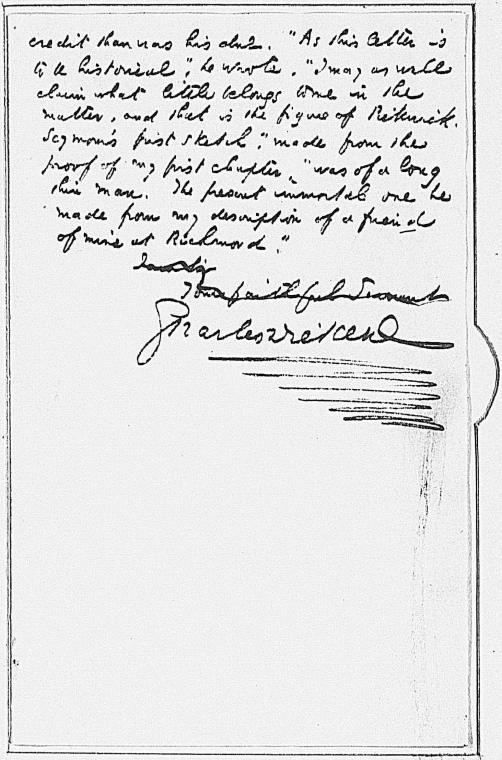 credit than was his due. "As this letter is
to be historical", he wrote, "I may as well
claim what little belongs to me in the
matter, and that is the figure of Pickwick.
Seymour's first sketch", "made from the
proof of my first chapter," "was of a long
thin man. The present immortal one he
made from my description of a friend
of mine at Richmond."
I am Sir
Your faithful Servant
Charles Dickens